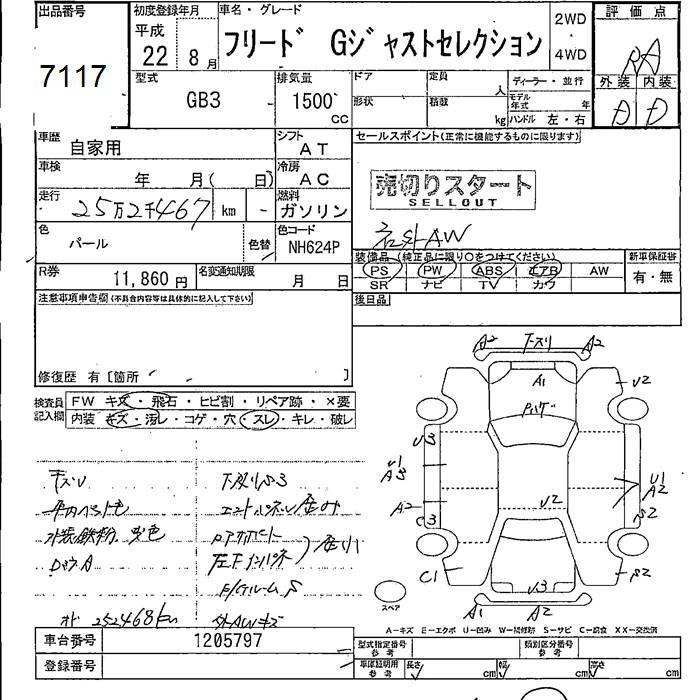 出品番号
7117
初度登録年月
平成
22 8月
車名・グレード
フリード Gジャストセレクション
2WD
・
4WD
評価点
RA
外装 内装
D D
型式
GB3
排気量
1500
CC
ドア
定員
人
形状
積数
kg
ディーラー・並行
モデル年式 年
ハンドル 左・右
車歴
自家用
シフト
AT
車検
年 月( 日)
冷房
AC
走行
25万2千467 km
燃料
ガソリン
色
パール
色替
色コード
NH624P
R券
11,860円
名変通知期限
月 日
セールスポイント(正常に機能するものに限ります)
売切りスタート
SELLOUT
社外AW
装備品 (純正品に限り○をつけてください)
PS PW ABS エアB AW
SR ナビ TV カワ
新車保証書
有・無
後日品
注意事項申告欄(不具合内容等は具体的に記入して下さい)
修復歴 有[箇所 ]
検査員記入欄
FW キズ・飛石・ヒビ割・リペア跡・×要
内装 キズ・汚レ・コゲ・穴・スレ・キレ・破レ
キズU
下廻りS3
外装鉄粉
252468km
外AWキズ
A2 A2
A1
U2
U3
U1
A3
A2
C3
U2
U1
A2
S2
C1
S2
U3
A1 A2
スペア
A-キズ E-エクボ U-凹み W-補修跡 S-サビ C-腐食 XX-交換済
車台番号 1205797
登録番号
型式指定番号
参考
類別区分番号
参考
車庫証明用
参考
長さ cm 幅 cm 高さ cm